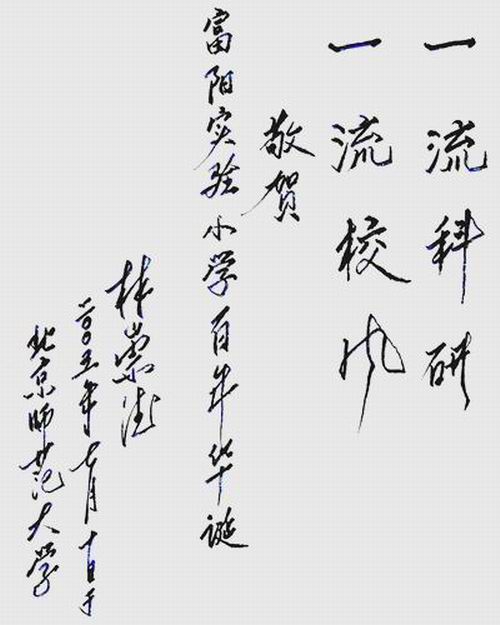 一流科研
一流校风
敬贺
富阳实验小学百年华诞
林崇德
二〇〇五年七月十日于
北京师范大学